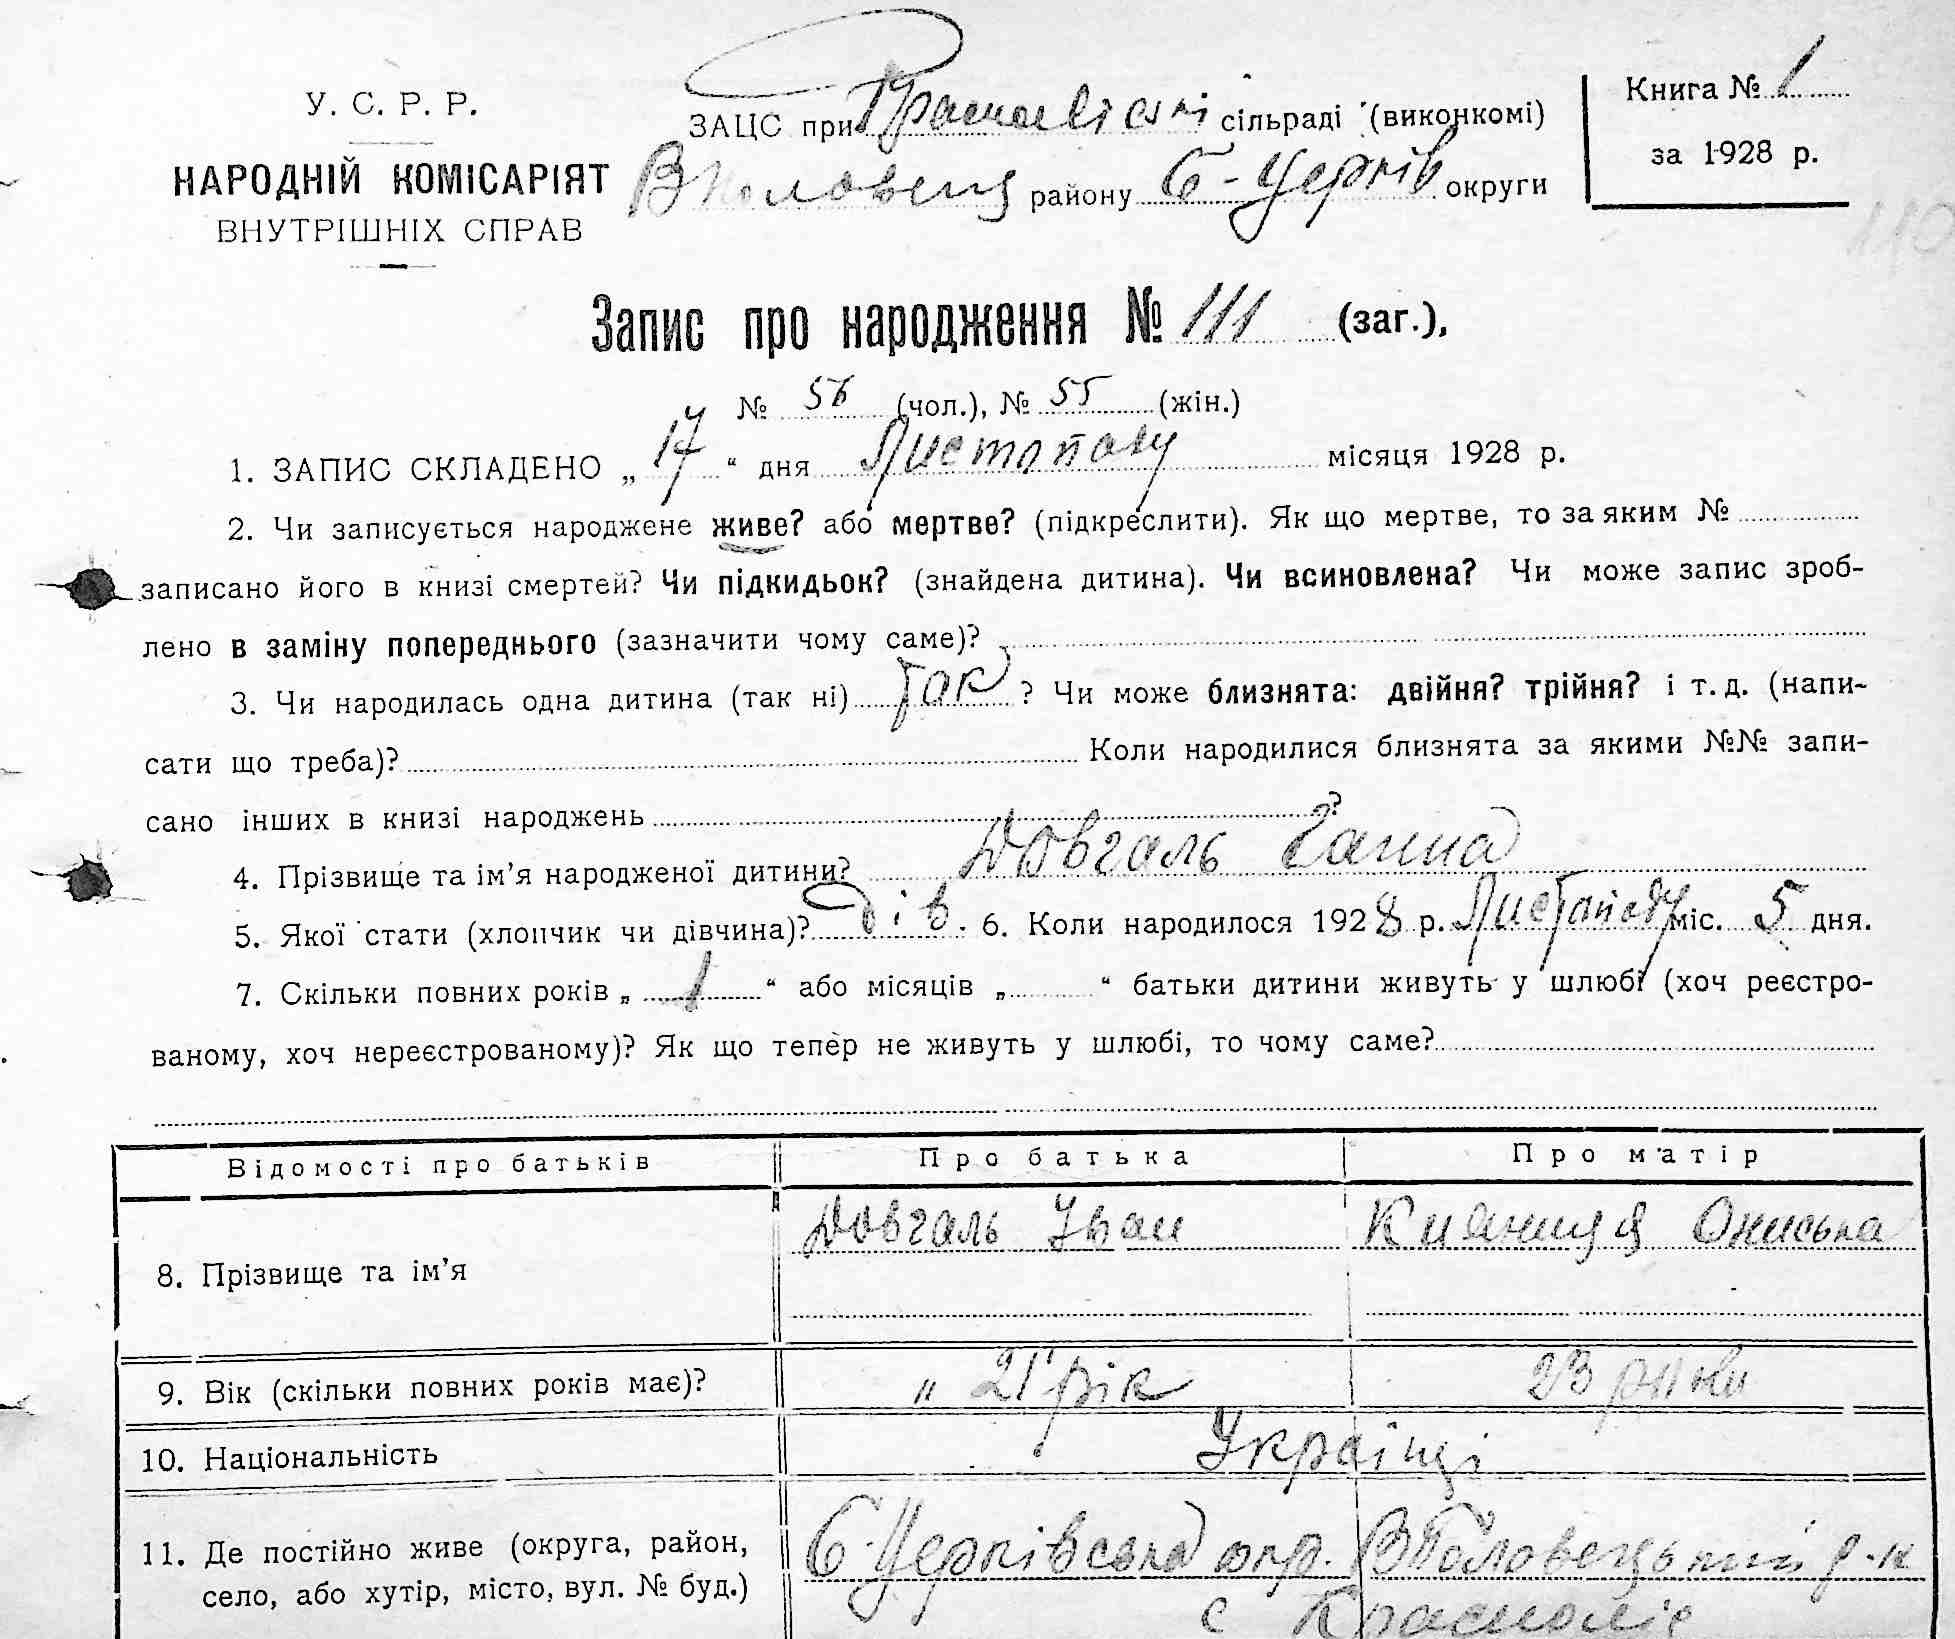 У. С. Р. Р.
НАРОДНІЙ КОМІСАРІЯТ
ВНУТРІШНІХ СПРАВ
ЗАЦС при Красноліській сільраді (виконкомі)
В Половецьк району Б-Церків округи
Книга № 1
за 1928 р.
110
Запис про народження № 111 (заг.),
№ 56 (чол.), № 55 (жін.)
1. ЗАПИС СКЛАДЕНО „ 17 “ дня Листопаду місяця 1928 р.
2. Чи записується народжене живе? або мертве? (підкреслити). Як що мертве, то за яким №
записано його в книзі смертей? Чи підкидьок? (знайдена дитина). Чи всиновлена? Чи може запис зроб-
лено в заміну попереднього (зазначити чому саме)?
3. Чи народилась одна дитина (так ні) Так ? Чи може близнята: двійня? трійня? і т. д. (напи-
сати що треба)? Коли народилися близнята за якими №№ запи-
сано інших в книзі народжень ?
4. Прізвище та ім’я народженої дитини? Довгаль Ганна
5. Якої стати (хлопчик чи дівчина)? дів. 6. Коли народилося 1928 р. Листопаду міс. 5 дня.
7. Скільки повних років „ 1 “ або місяців „ “ батьки дитини живуть у шлюбі (хоч реєстро-
ваному, хоч нереєстрованому)? Як що тепер не живуть у шлюбі, то чому саме?
Відомості про батьків Про батька Про матір
8. Прізвище та ім’я Довгаль Іван Кияниця Ониська
9. Вік (скільки повних років має)? „ 21 рік 23 роки
10. Національність Українці
11. Де постійно живе (округа, район,
село, або хутір, місто, вул. № буд.)
Б-Церківська окр. В Половецький р-н
с Краснолісі